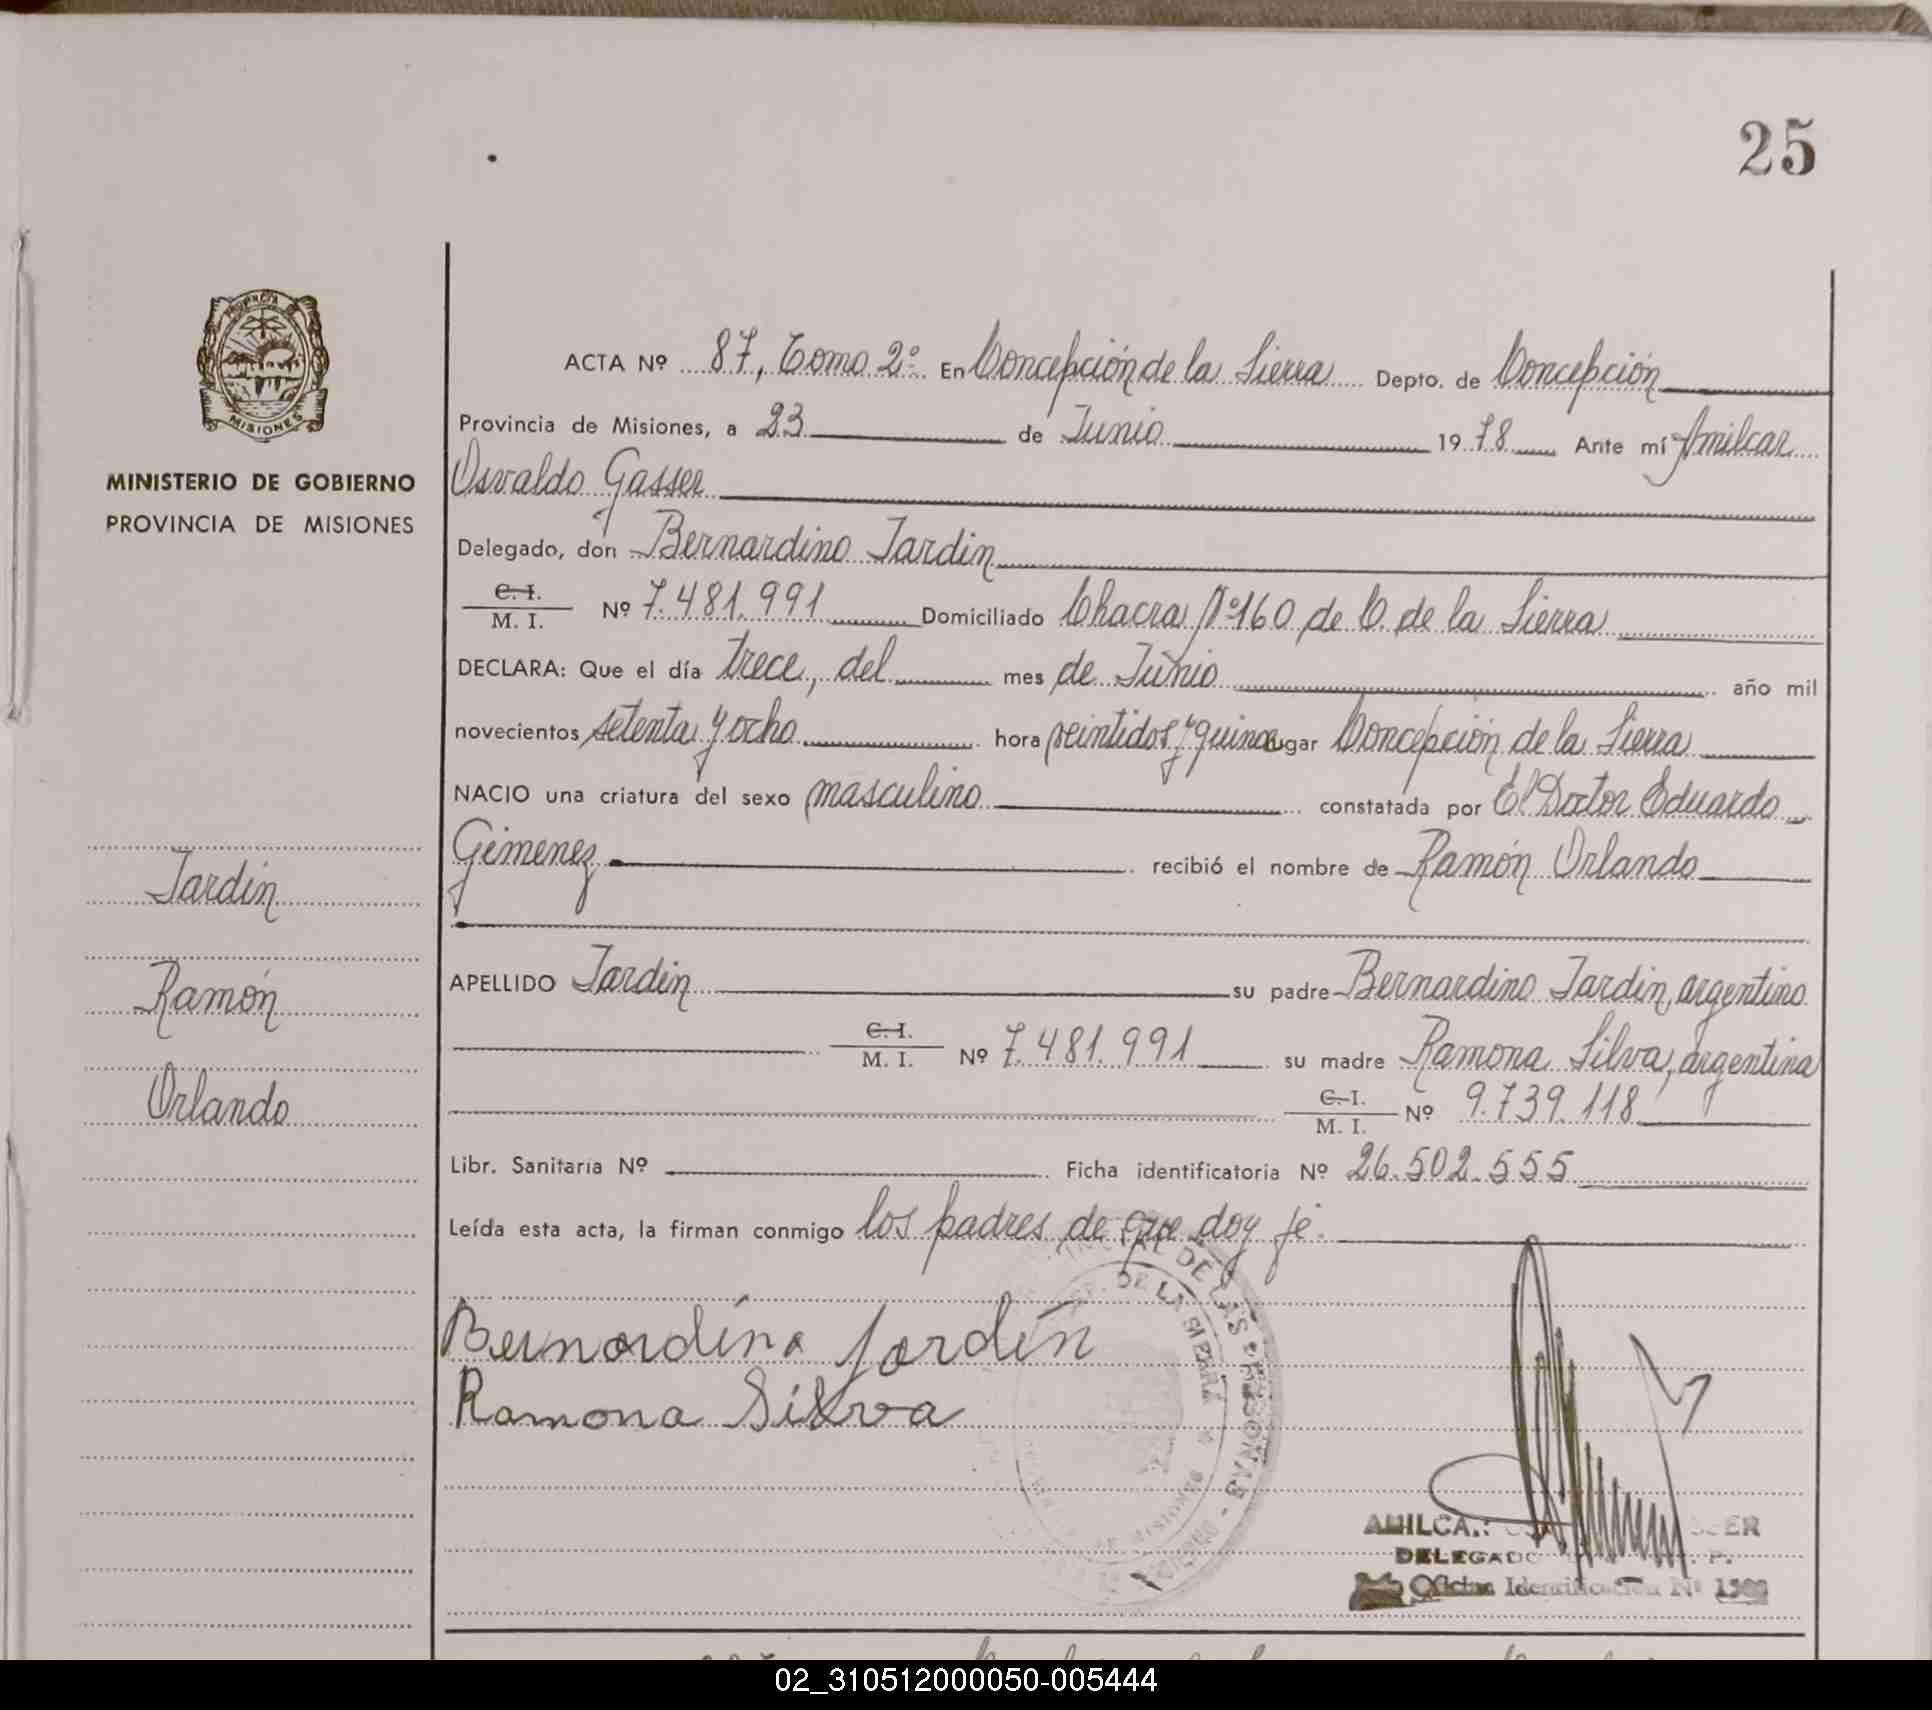 25
PROVINCIA DE
MISIONES
MINISTERIO DE GOBIERNO
PROVINCIA DE MISIONES
Jardin
Ramón
Orlando
ACTA Nº 87, Tomo 2º En Concepción de la Sierra Depto. de Concepción
Provincia de Misiones, a 23 de Junio 1978 Ante mí Amilcar
Osvaldo Gasser
Delegado, don Bernardino Jardin
C. I.
M. I. Nº 7.481.991 Domiciliado Chacra Nº 160 de C. de la Sierra
DECLARA: Que el día trece, del mes de Junio año mil
novecientos setenta y ocho hora veintidos y quince lugar Concepción de la Sierra
NACIO una criatura del sexo masculino constatada por El Doctor Eduardo
Gimenez recibió el nombre de Ramón Orlando
APELLIDO Jardin su padre Bernardino Jardin, argentino
C. I.
M. I. Nº 7.481.991 su madre Ramona Silva, argentina
C. I.
M. I. Nº 9.739.118
Libr. Sanitaria Nº Ficha identificatoria Nº 26.502.555
Leída esta acta, la firman conmigo los padres de que doy fé.
Bernardino Jardín
Ramona Silva
DE LAS PERSONAS
DE LA SIERRA
MISIONES
DELEGADO
Oficina Identificación Nº
02_310512000050-005444